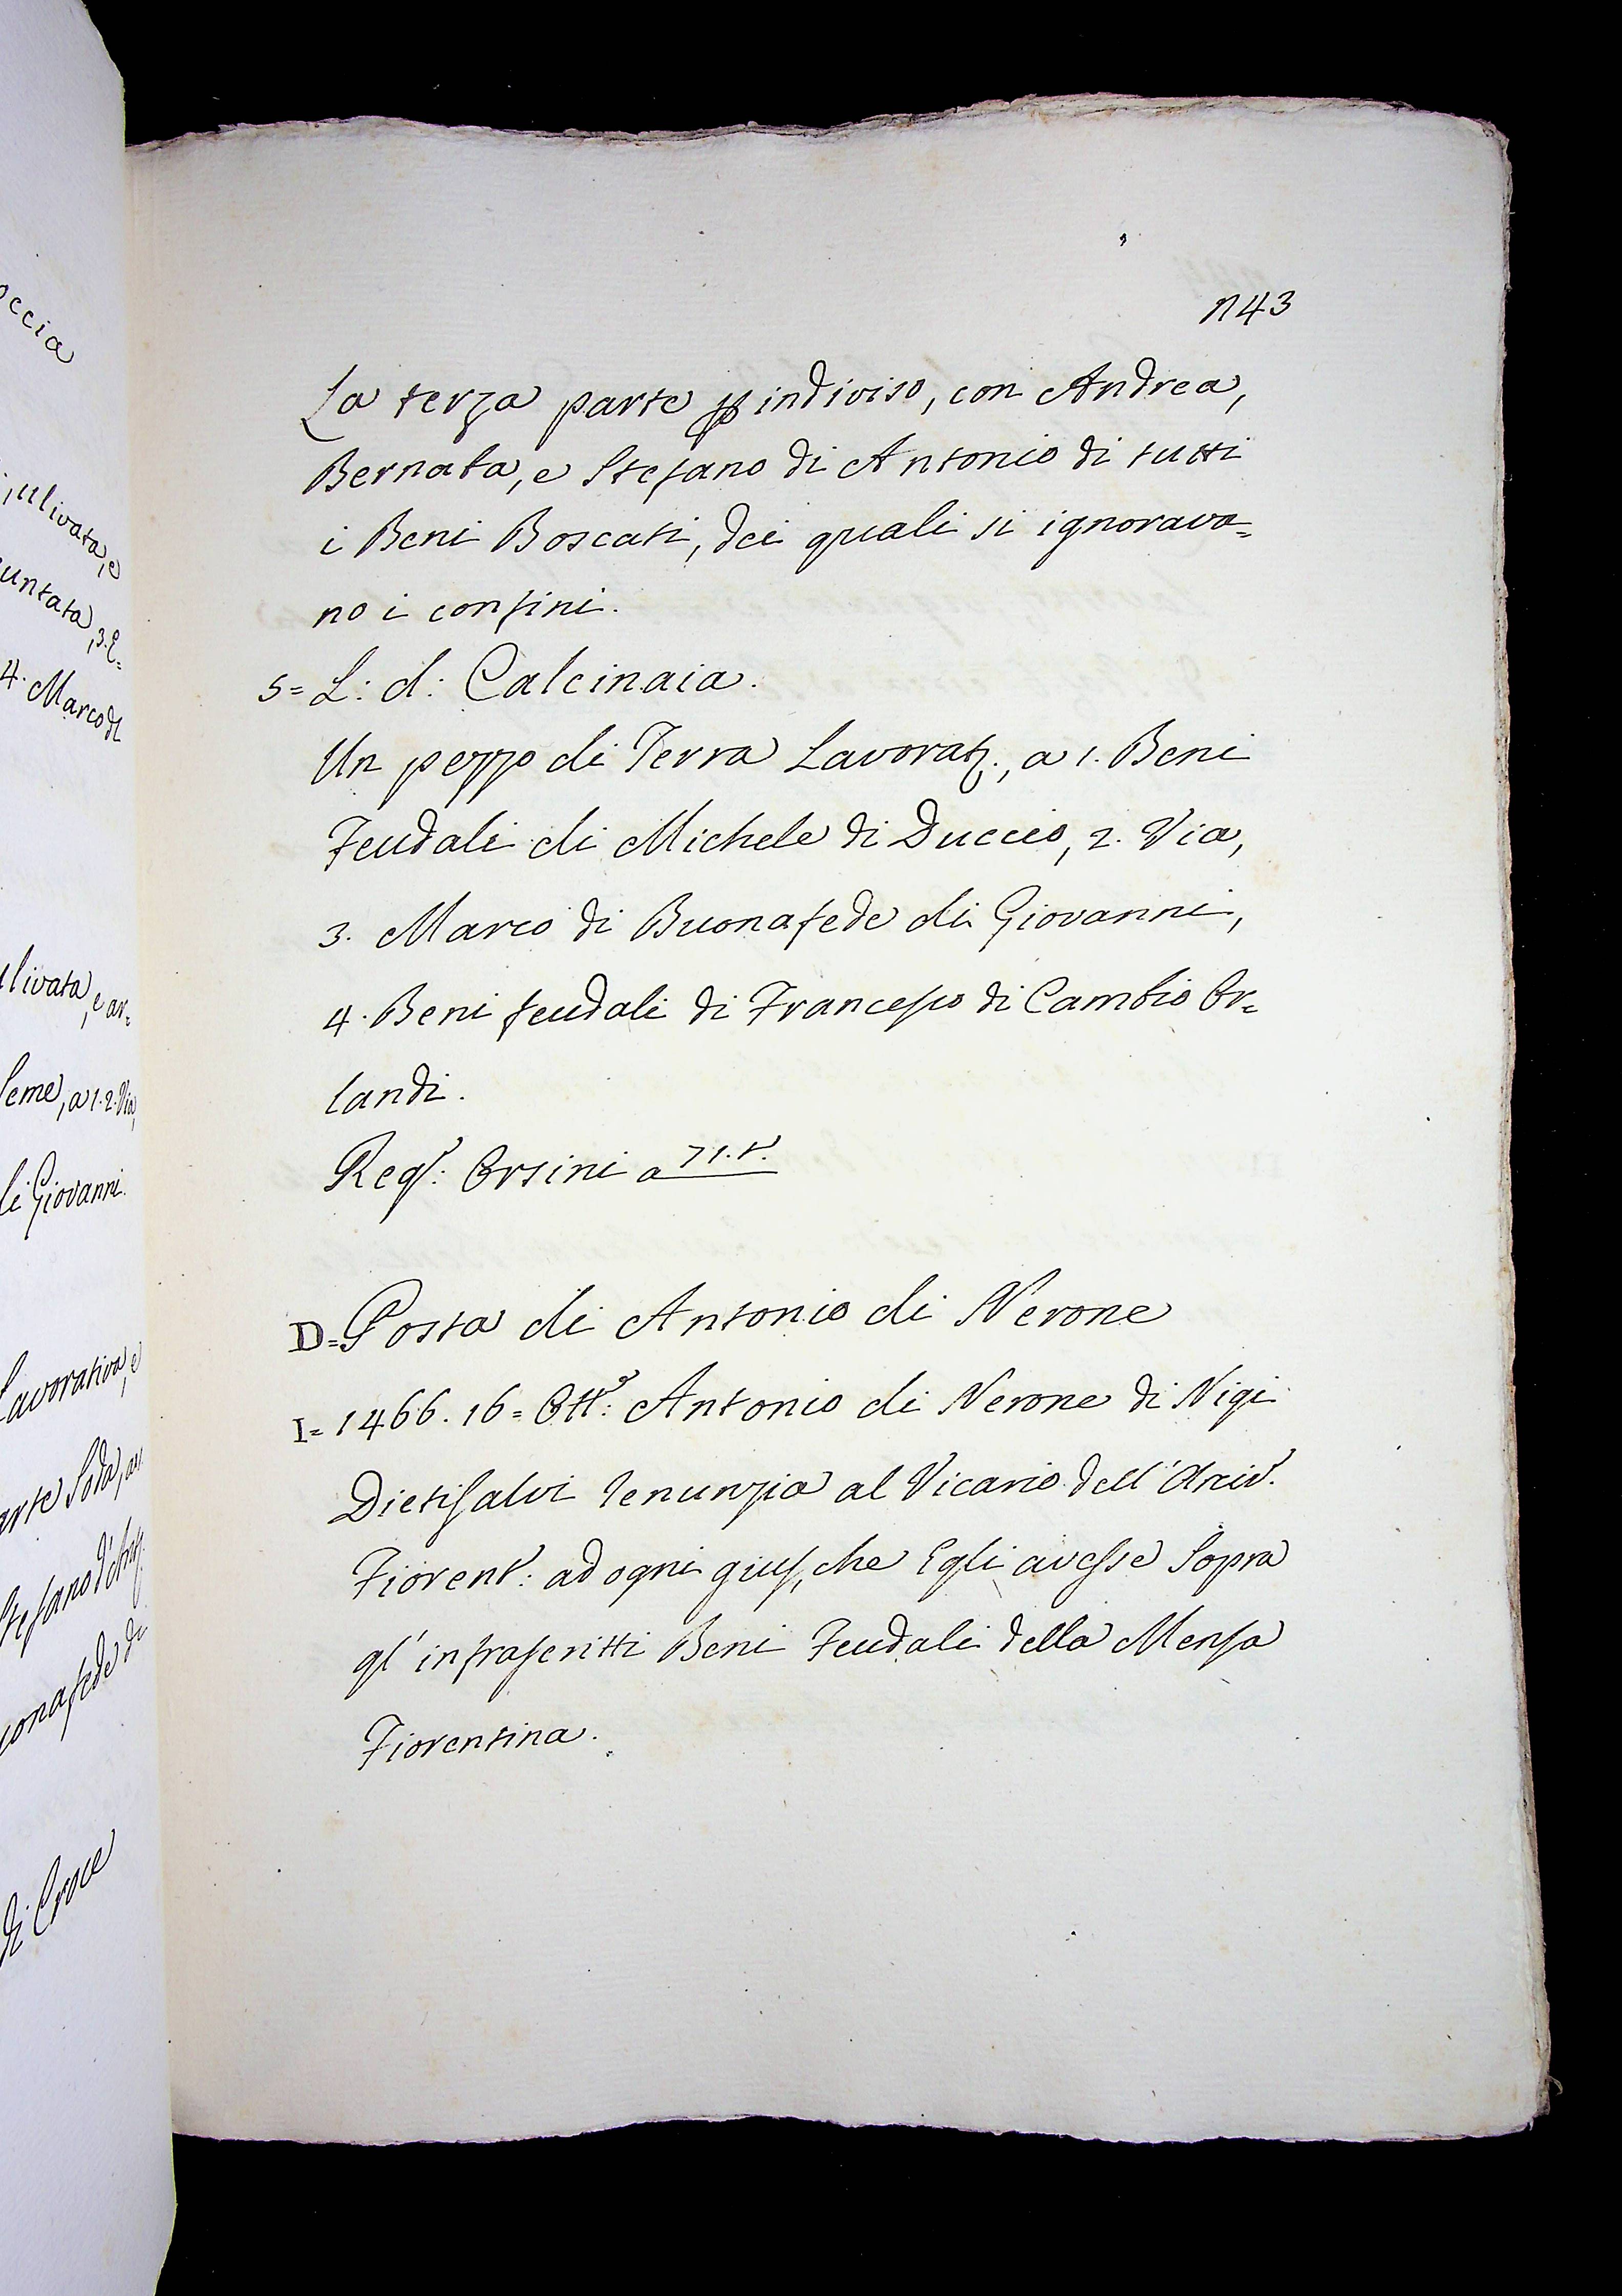 n43
La terza parte p indiviso, con Andrea,
Bernaba, e Stefano di Antonio di tutti
i Beni Boscati, dei quali si ignorava=
no i confini.
5= L: d: Calcinaia.
Un pezzo di Terra Lavorat:, a 1. Beni
Feudali di Michele di Duccio, 2. Via,
3. Marco di Buonafede di Giovanni,
4. Beni feudali di Francesco di Cambio Or=
landi.
Regº: Orsini a 71. t.
D= Posta di Antonio di Nerone
I= 1466. 16= Ottº: Antonio di Nerone di Nigi
Dietisalvi renunzia al Vicario dell' Arciv.
Fiorent: ad ogni gius, che Egli avesse Sopra
gl' infrascritti Beni Feudali della Mensa
Fiorentina.
occia
, ulivata, e
untata, 3. E=
4. Marco di
livata, e ar=
Seme, a 1. 2. Via,
di Giovanni.
Lavorativa, e
arte Soda, a
Stefano d'
uonafede di
di Croce